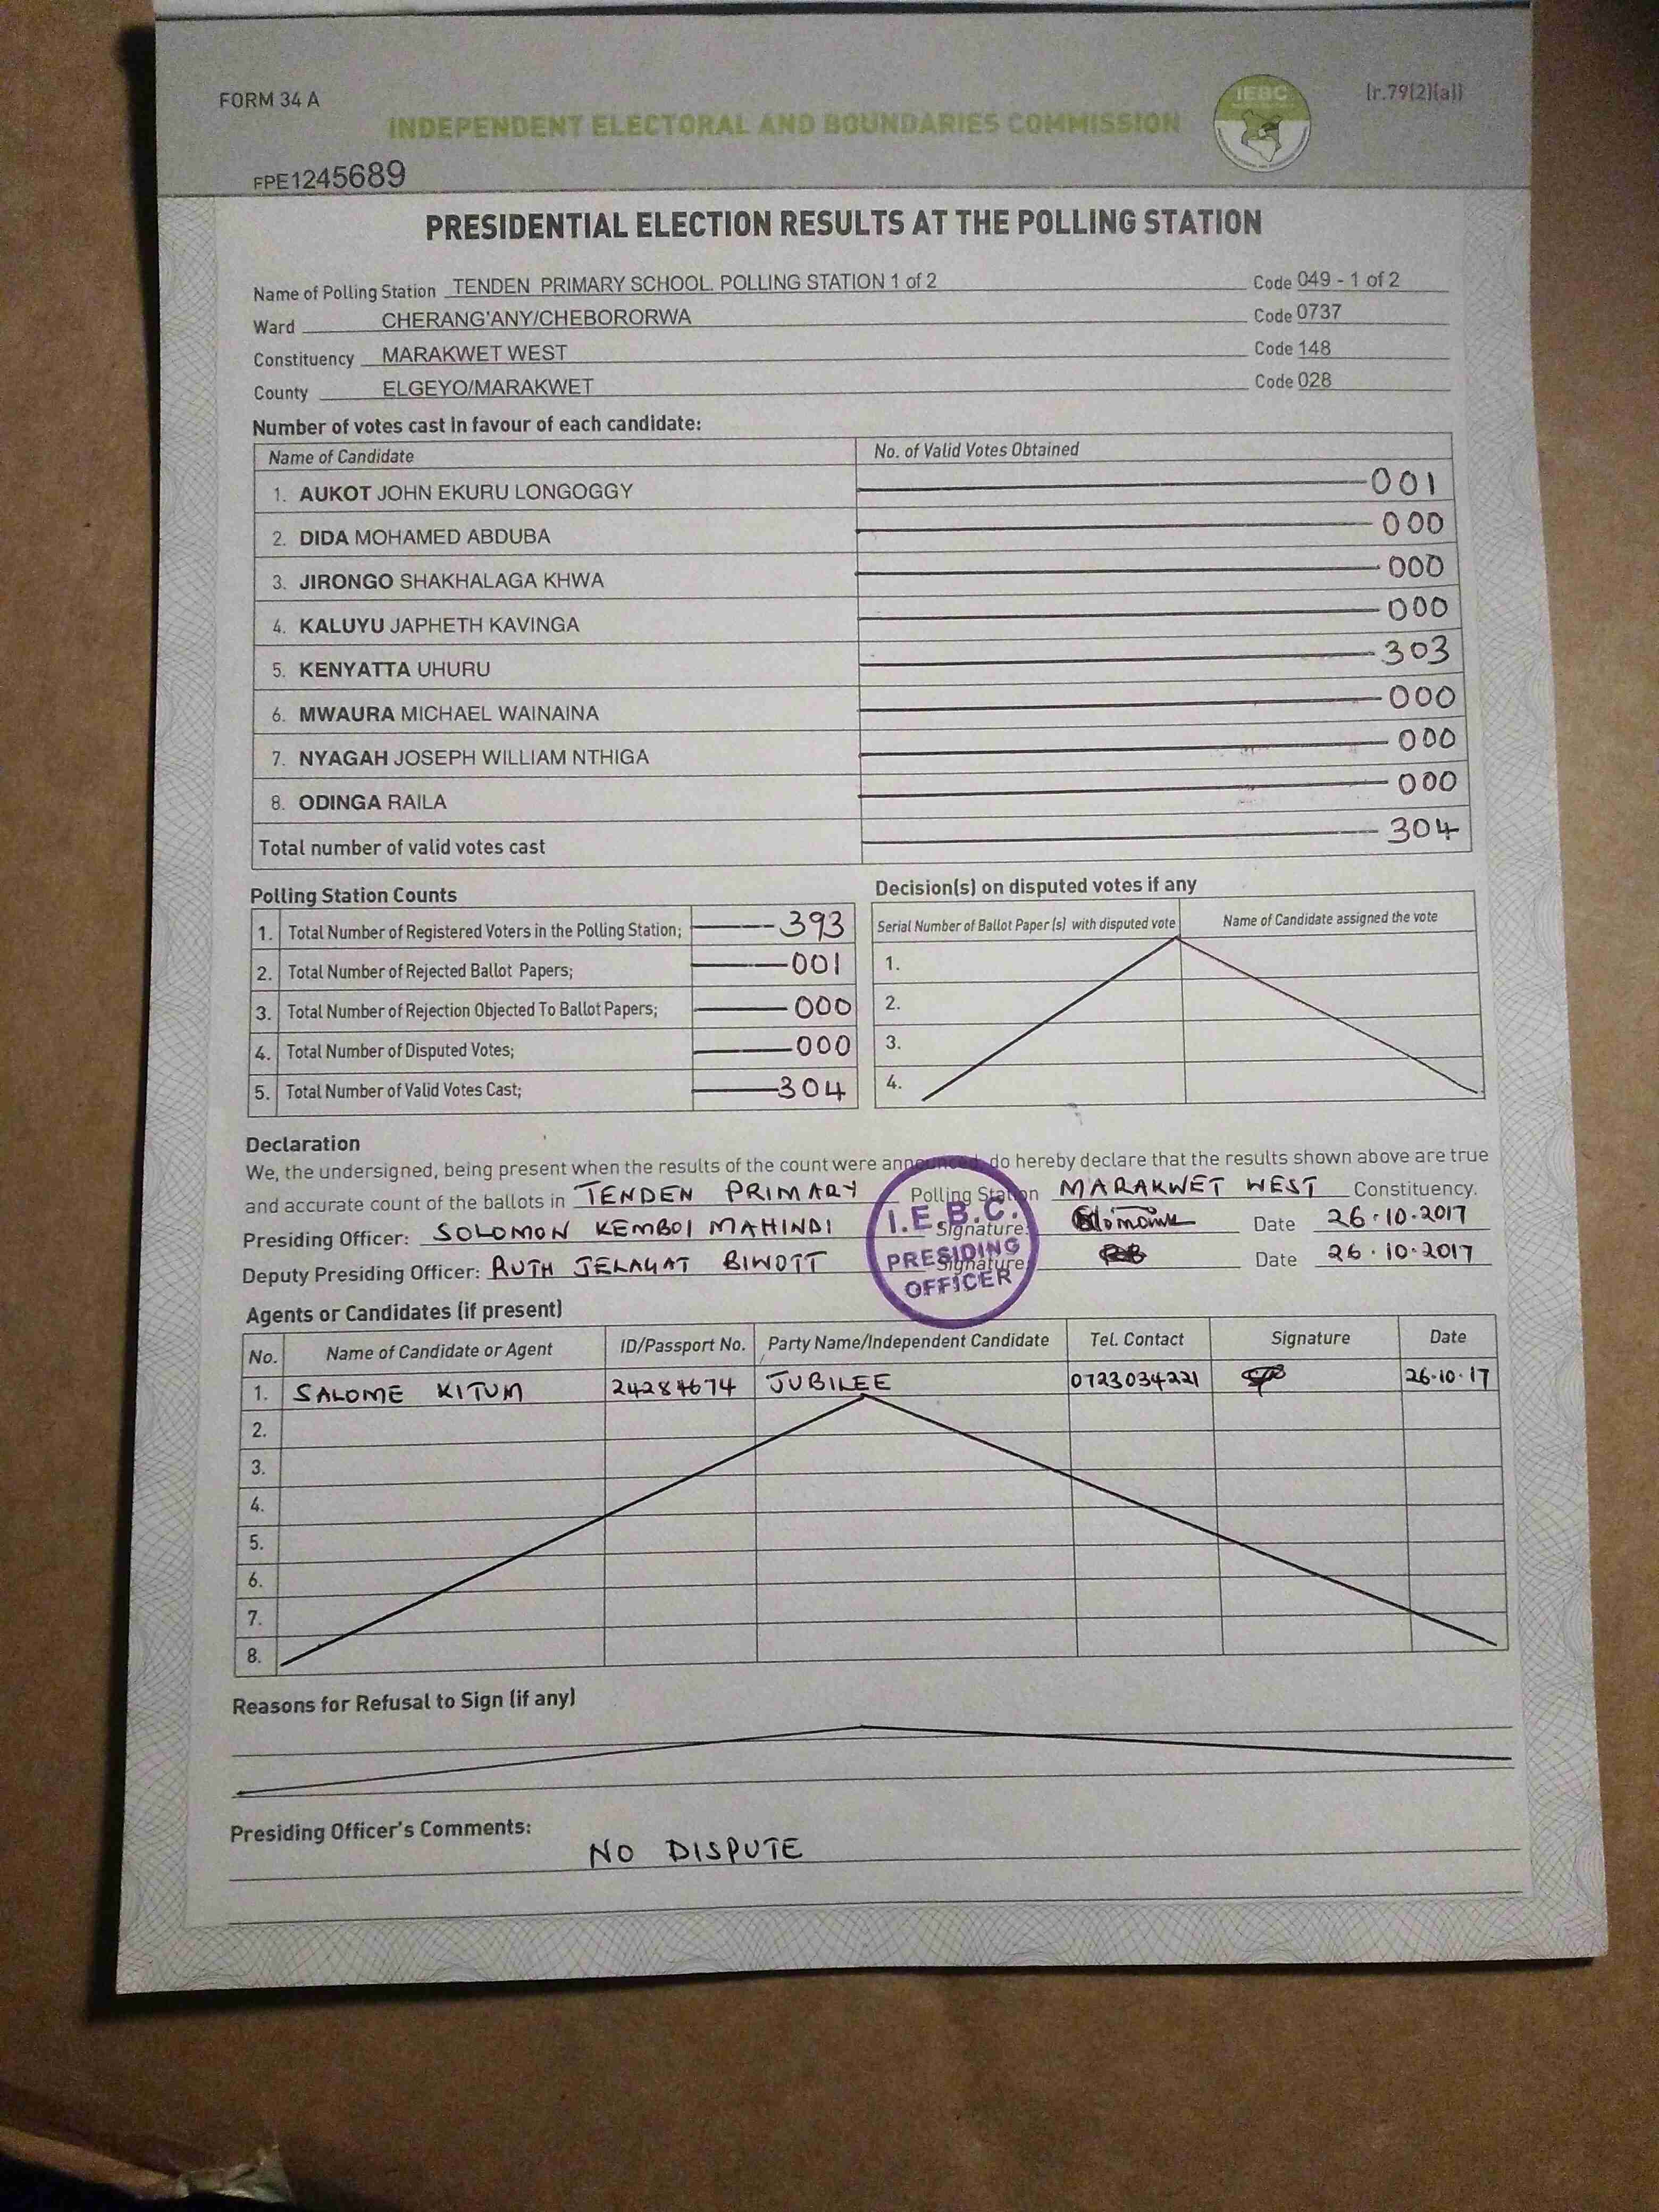 FORM 34 A
IEBC
(r.79(2)(a))
INDEPENDENT ELECTORAL AND BOUNDARIES COMMISSION
FPE1245689
PRESIDENTIAL ELECTION RESULTS AT THE POLLING STATION
Name of Polling Station TENDEN PRIMARY SCHOOL. POLLING STATION 1 of 2 Code 049 - 1 of 2
Ward CHERANG'ANY/CHEBORORWA Code 0737
Constituency MARAKWET WEST Code 148
County ELGEYO/MARAKWET Code 028
Number of votes cast in favour of each candidate:
Name of Candidate No. of Valid Votes Obtained
1. AUKOT JOHN EKURU LONGOGGY 001
2. DIDA MOHAMED ABDUBA 000
3. JIRONGO SHAKHALAGA KHWA 000
4. KALUYU JAPHETH KAVINGA 000
5. KENYATTA UHURU 303
6. MWAURA MICHAEL WAINAINA 000
7. NYAGAH JOSEPH WILLIAM NTHIGA 000
8. ODINGA RAILA 000
Total number of valid votes cast 304
Polling Station Counts
1. Total Number of Registered Voters in the Polling Station; 393
2. Total Number of Rejected Ballot Papers; 001
3. Total Number of Rejection Objected To Ballot Papers; 000
4. Total Number of Disputed Votes; 000
5. Total Number of Valid Votes Cast; 304
Decision(s) on disputed votes if any
Serial Number of Ballot Paper (s) with disputed vote Name of Candidate assigned the vote
1.
2.
3.
4.
Declaration
We, the undersigned, being present when the results of the count were announced, do hereby declare that the results shown above are true
and accurate count of the ballots in TENDEN PRIMARY Polling Station MARAKWET WEST Constituency.
Presiding Officer: SOLOMON KEMBOI MAHINDI Signature: Date 26.10.2017
Deputy Presiding Officer: RUTH JELAGAT BIWOTT Signature: Date 26.10.2017
I.E.B.C.
PRESIDING
OFFICER
Agents or Candidates (if present)
No. Name of Candidate or Agent ID/Passport No. Party Name/Independent Candidate Tel. Contact Signature Date
1. SALOME KITUM 24284674 JUBILEE 0723034221 26.10.17
2.
3.
4.
5.
6.
7.
8.
Reasons for Refusal to Sign (if any)
Presiding Officer's Comments:
NO DISPUTE